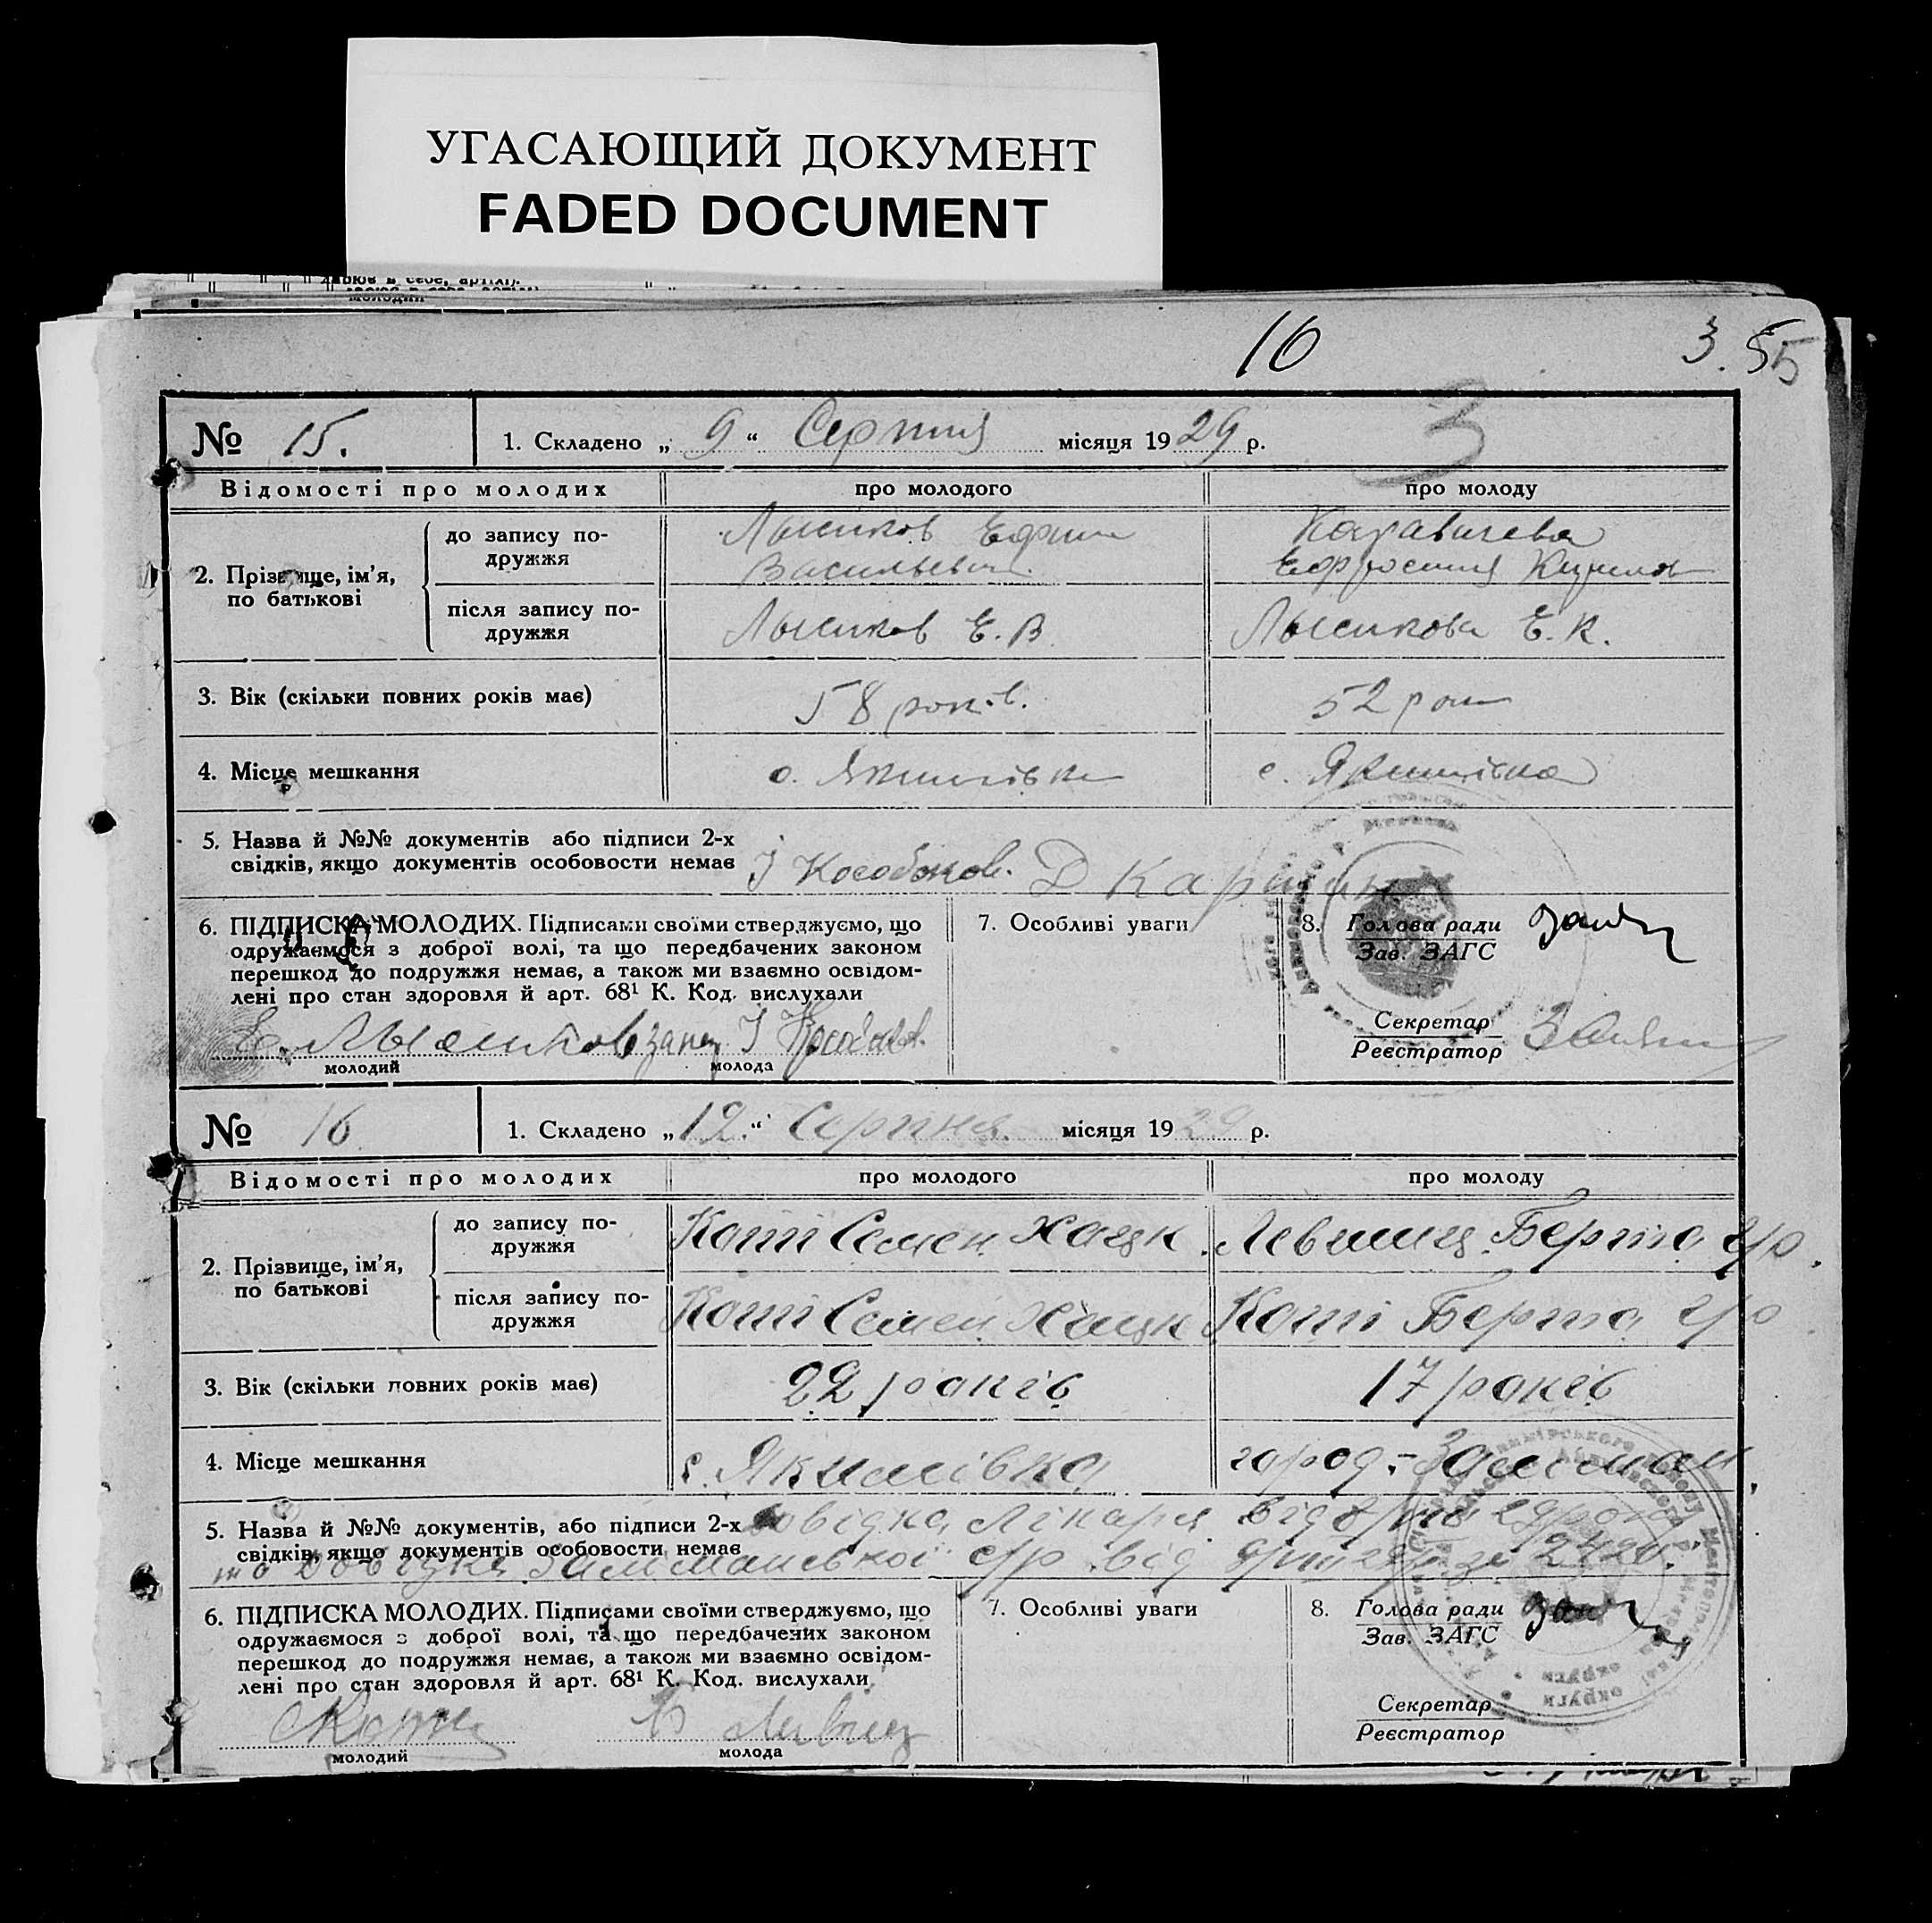 УГАСАЮЩИЙ ДОКУМЕНТ
FADED DOCUMENT
16
3. 55
3
№ 15. 1. Складено „ 9 “ Серпня місяця 1929 р.
Відомості про молодих про молодого про молоду
2. Прізвище, ім'я, по батькові
до запису подружжя
Лысиков Ефим
Васильевич.
Каравичева
Ефросиния Кирилов
після запису подружжя
Лысиков Е. В.
Лысикова Е. К.
3. Вік (скільки повних років має) 58 років. 52 роки
4. Місце мешкання с. Якимівка с. Якимівка
5. Назва й №№ документів або підписи 2-х
свідків, якщо документів особовости немає І Кособоков. Д
6. ПІДПИСКА МОЛОДИХ. Підписами своїми стверджуємо, що
одружаємося з доброї волі, та що передбачених законом
перешкод до подружжя немає, а також ми взаємно освідом-
лені про стан здоровля й арт. 68¹ К. Код. вислухали
Е. Лысиков І Кособоков.
молодий молода
7. Особливі уваги
8. Голова ради
Зав. ЗАГС
Секретар
Реєстратор
№ 16 1. Складено „12.“ Серпня. місяця 1929 р.
Відомості про молодих про молодого про молоду
2. Прізвище, ім'я, по батькові
до запису подружжя
Котт Семен Хацк.
Левшиц Берта гр.
після запису подружжя
Котт Семен Хацк
Котт Берта гр
3. Вік (скільки повних років має) 22 років 17 років
4. Місце мешкання с. Якимівка город.
5. Назва й №№ документів, або підписи 2-х
свідків, якщо документів особовости немає
довідка лікаря від
та довідка с/р від
6. ПІДПИСКА МОЛОДИХ. Підписами своїми стверджуємо, що
одружаємося з доброї волі, та що передбачених законом
перешкод до подружжя немає, а також ми взаємно освідом-
лені про стан здоровля й арт. 68¹ К. Код. вислухали
молодий молода
7. Особливі уваги
8. Голова ради
Зав. ЗАГС
Секретар
Реєстратор